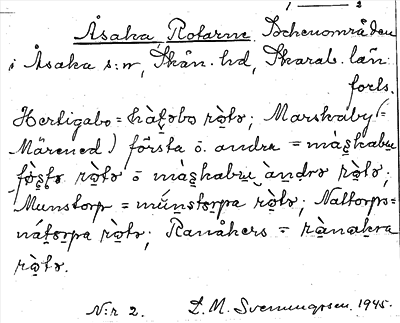 1 — 2
Åsaka Rotarne, Scheområden
i Åsaka s:n, Skån. hd, Skarab. län
forts.
Hertigabo = hàt̯əbo ròtə; Marskaby (=
Märened) första o. andra = màs̯kabu
fòs̯tə ròtə o màs̯kabu àndrə ròtə;
Munstorp = múnstɔrpa ròtə; Naltorps=
nátɔrpa ròtə; Ranåkers = rànakra
ròtə.
N:r 2. D. M. Svenungsson. 1945.